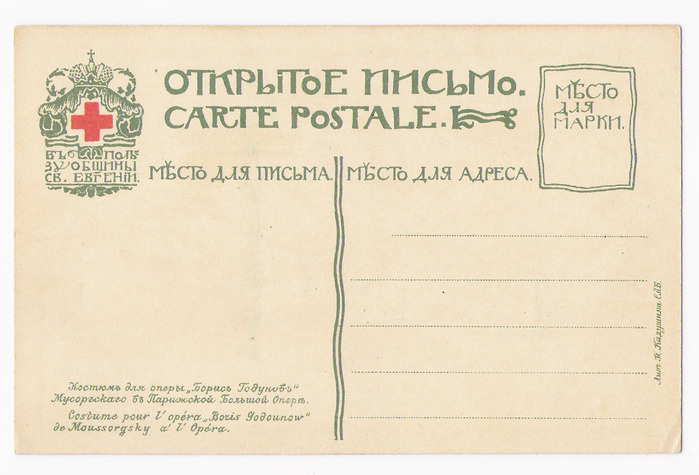 ОТКРЫТОЕ ПИСЬМО.
CARTE POSTALE.
МѢСТО
ДЛЯ
МАРКИ.
ВЪ ПОЛЬ
ЗУ ОБЩИНЫ
СВ. ЕВГЕНІИ.
МѢСТО ДЛЯ ПИСЬМА.
МѢСТО ДЛЯ АДРЕСА.
Костюмъ для оперы „Борисъ Годуновъ“
Мусоргскаго въ Парижской Большой Оперѣ.
Costume pour l'opéra „Boris Godounow“
de Moussorgsky a' l' Opéra.
Лит. Н. Кадушина С.П.Б.